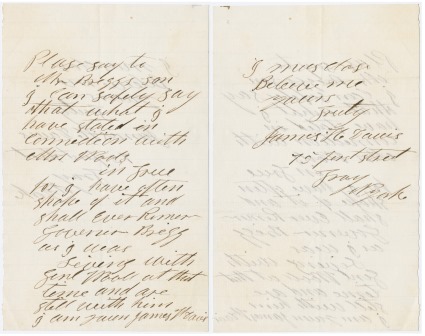 Please say to
Mr Briggs son
I can safely say
that what I
have stated in
connection with
Mr Wool
is true
for I have often
spoke of it and
shall ever Remem
Governor Brigg
as I was
Living with
Genl Wool at that
time and are
still with him
I am yours James H Davis
I must clos
Believe me
yours
Truly
James H Davis
75 first street
Troy